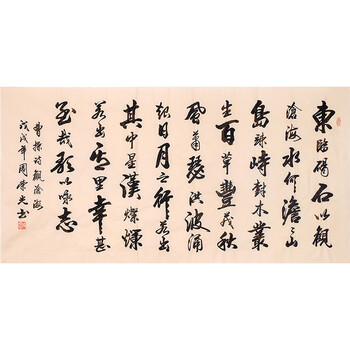 東臨碣石以觀
滄海水何澹〻山
島竦峙樹木叢
生百草豐茂秋
風蕭瑟洪波涌
起日月之行若出
其中星漢燦爛
若出其里幸甚
至哉歌以咏志
曹操诗觀滄海
戊戌年光书